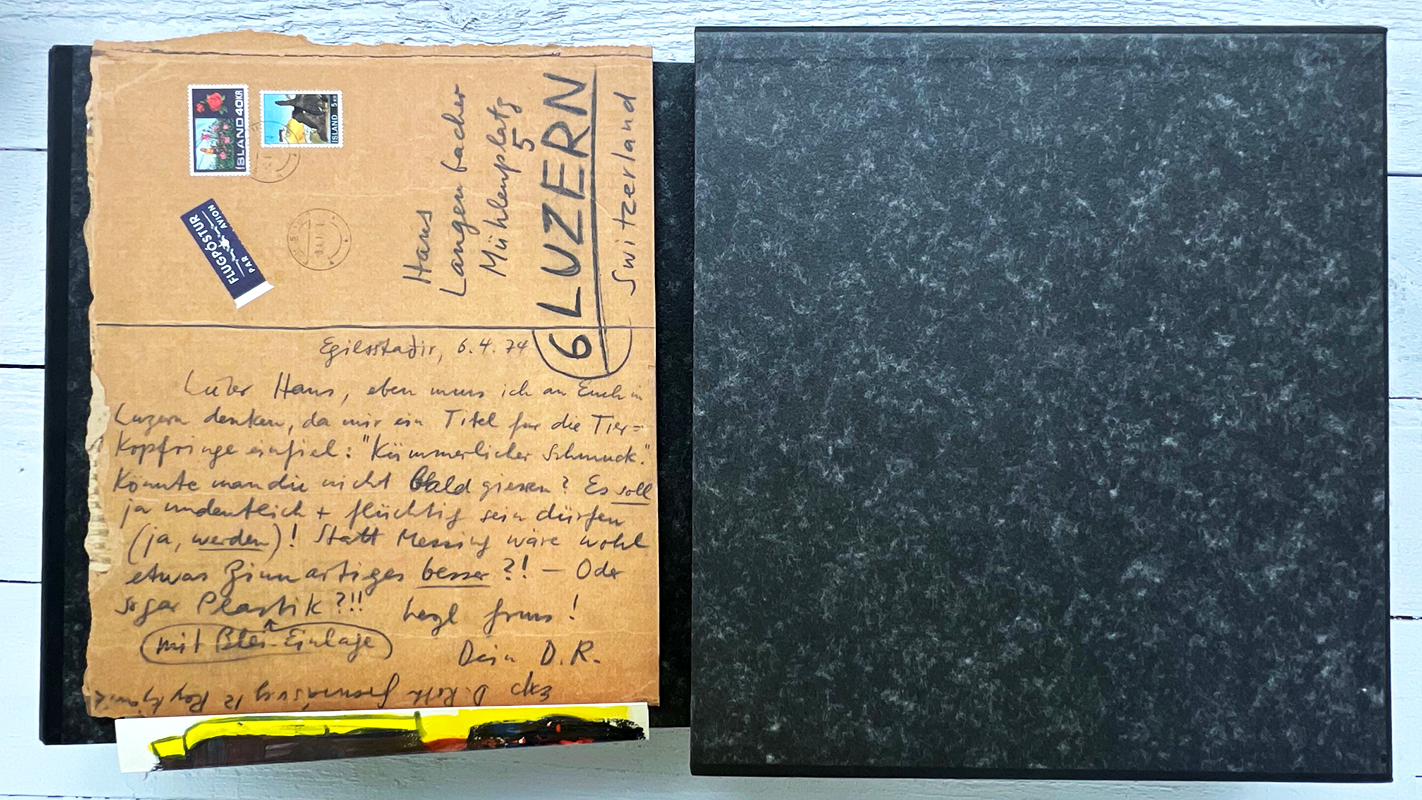 ISLAND 40KR
ISLAND
FLUGPÓSTUR
PAR AVION
Hans
Langenbacher
Mühlenplatz
5
6 LUZERN
Switzerland
Egilsstadir, 6.4.74
Lieber Hans, eben muss ich an Euch in
Luzern denken, da mir ein Titel für die Tier=
Kopfringe einfiel: "Kümmerlicher Schmuck."
Könnte man die nicht bald giessen? Es soll
ja undeutlich + flüchtig sein dürfen
(ja, werden)! Statt Messing wäre wohl
etwas Zinnartiges besser?! — Oder
sogar Plastik?!! herzl gruss!
mit Blei-Einlage
Dein D.R.
Exp D. Roth 12